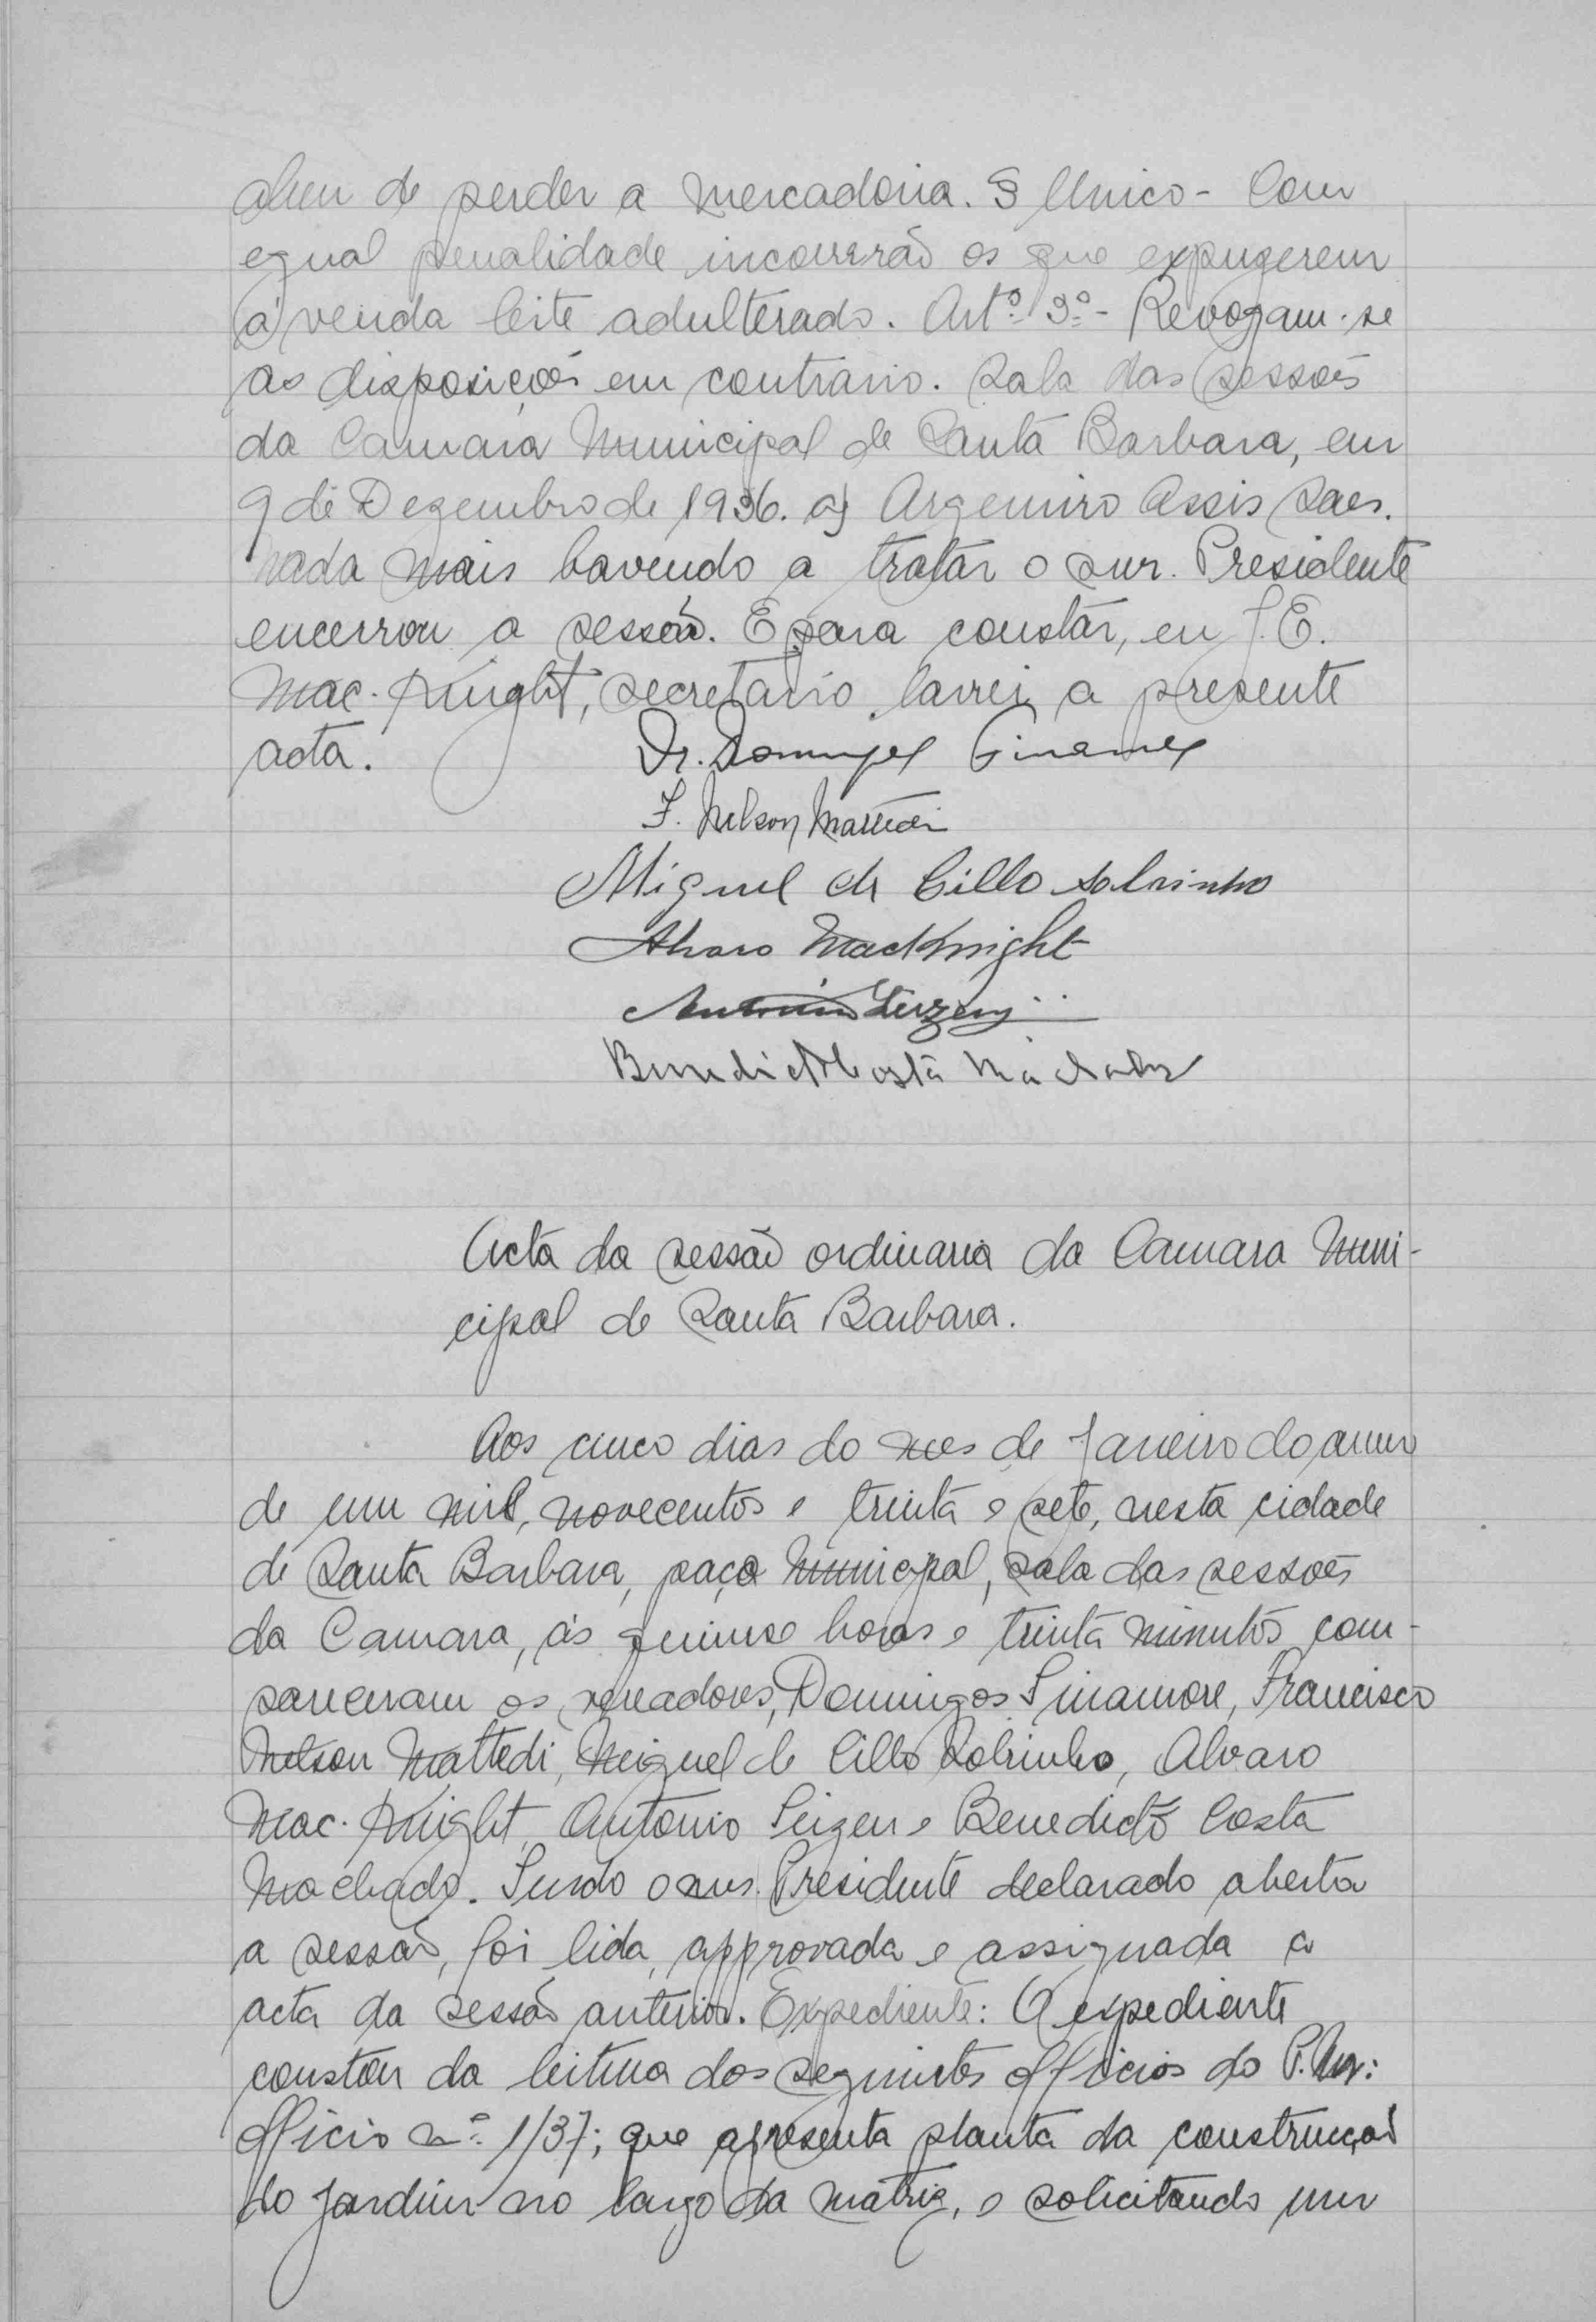 alem de perder a mercadoria. § Unico - Com
egual penalidade incorrerão os que expuzerem
á venda leite adulterado. Artº. 3º - Revogam-se
as disposições em contrario. Sala das sessões
da Camara Municipal de Santa Barbara, em
9 de Dezembro de 1936. a) Argemiro Assis Saes.
Nada mais havendo a tratar o snr. Presidente
encerrou a sessão. E para constar, eu J. E.
Mac-Knight, secretario lavrei a presente
acta.
Dr. Domingos Finamor
F. Nelson Mattedi
Miguel de Cillo Sobrinho
Alvaro MacKnight
Antonio
Benedicto Costa Machado
Acta da sessão ordinaria da Camara Muni-
cipal de Santa Barbara.
Aos cinco dias do mes de Janeiro do anno
de um mil, novecentos e trinta e sete, nesta cidade
de Santa Barbara, paço Municipal, sala das sessões
da Camara, ás quinse horas e trinta minutos com-
pareceram os vereadores, Domingos Finamore, Francisco
Nelson Mattedi, Miguel de Cillo Sobrinho, Alvaro
Mac-Knight, Antonio e Benedicto Costa
Machado. Tendo o snr. Presidente declarado aberta
a sessão, foi lida, approvada e assignada a
acta da sessão anterior. Expediente: O expediente
constou da leitura dos seguintes officios do P. M.:
officio nº. 1/37; que apresenta planta da construcção
do jardim no largo da matriz, e solicitando um